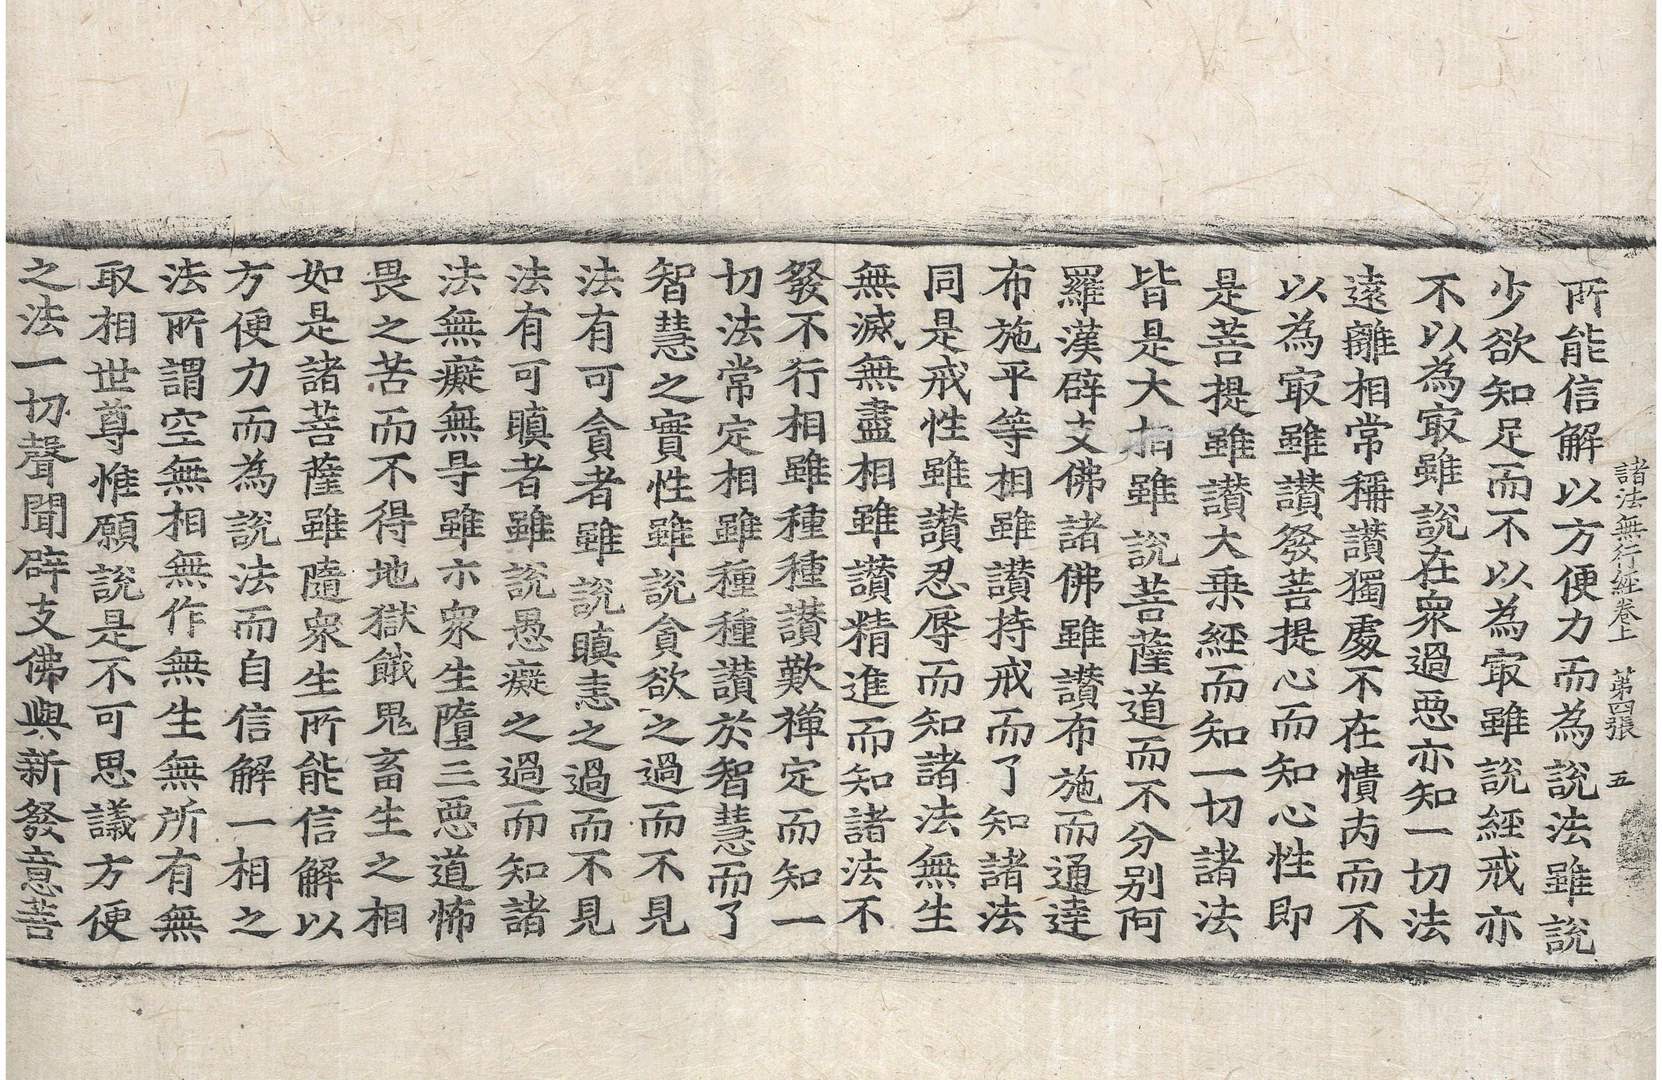 諸法無行經卷上 第四張 五
所能信解以方便力而為說法雖說
少欲知足而不以為㝡雖說經戒亦
不以為㝡雖說在衆過惡亦知一切法
遠離相常稱讚獨處不在憒丙而不
以為㝡雖讚發菩提心而知心性即
是菩提雖讚大乗經而知一切諸法
皆是大相雖說菩薩道而不分别阿
羅漢辟支佛諸佛雖讚布施而通達
布施平等相雖讚持戒而了知諸法
同是戒性雖讚忍辱而知諸法無生
無滅無盡相雖讚精進而知諸法不
發不行相雖種種讚歎禪定而知一
切法常定相雖種種讚於智慧而了
智慧之實性雖說貪欲之過而不見
法有可貪者雖說瞋恚之過而不見
法有可瞋者雖說愚癡之過而知諸
法無癡無㝵雖示衆生墮三惡道怖
畏之苦而不得地獄餓鬼畜生之相
如是諸菩薩雖隨衆生所能信解以
方便力而為說法而自信解一相之
法所謂空無相無作無生無所有無
取相世尊惟願說是不可思議方便
之法一切聲聞辟支佛與新發意菩